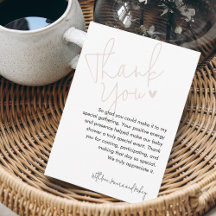 Thank
You
So glad you could make it to my
special gathering. Your positive energy
and presence helped make our baby
shower a truly special event. Thank
you for coming, participating, and
making that day so special.
We truly appreciate it.